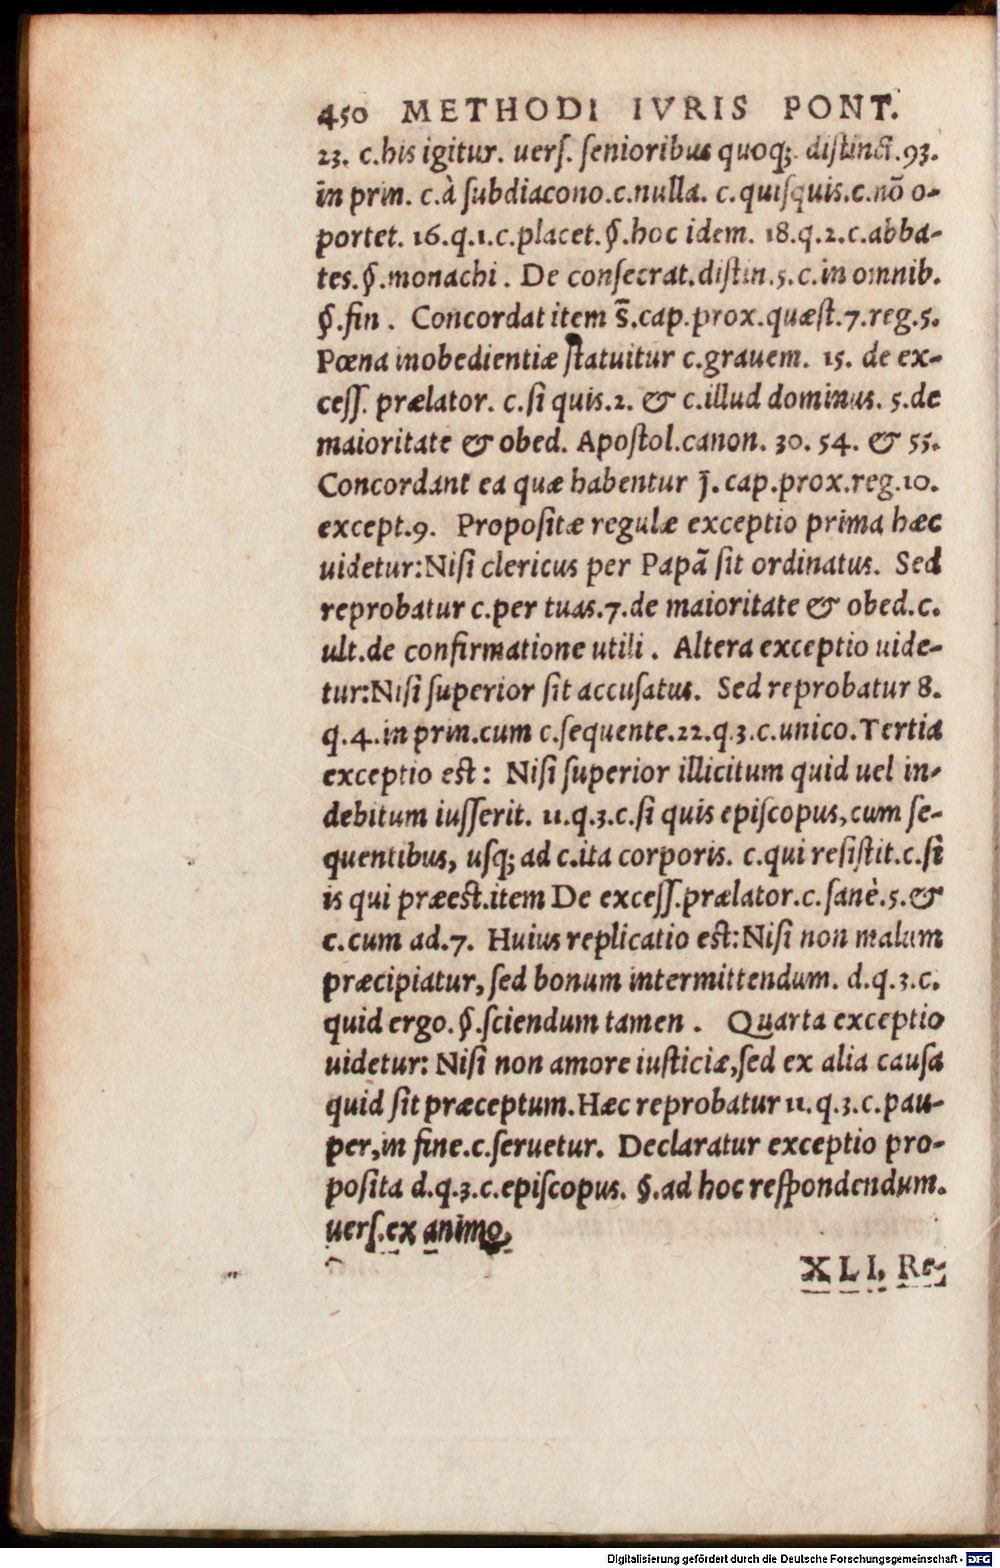 450 METHODI IVRIS PONT.
23. c.his igitur. uerſ. ſenioribus quoq;. diſtinct.93.
in prin. c.à ſubdiacono.c.nulla. c.quiſquis.c.nō o-
portet. 16.q.1.c.placet.§.hoc idem. 18.q.2.c.abba-
tes.§.monachi. De conſecrat.diſtin.5.c.in omnib.
§.fin. Concordat item s̄.cap.prox.quæſt.7.reg.5.
Pœna inobedientiæ ſtatuitur c.grauem. 15. de ex-
ceſſ. prælator. c.ſi quis.2. & c.illud dominus. 5.de
maioritate & obed. Apoſtol.canon. 30. 54. & 55.
Concordant ea quæ habentur j̄. cap.prox.reg.10.
except.9. Propoſitæ regulæ exceptio prima hæc
uidetur:Niſi clericus per Papā ſit ordinatus. Sed
reprobatur c.per tuas.7.de maioritate & obed.c.
ult.de confirmatione utili. Altera exceptio uide-
tur:Niſi ſuperior ſit accuſatus. Sed reprobatur 8.
q.4.in prin.cum c.ſequente.22.q.3.c.unico.Tertia
exceptio est: Niſi ſuperior illicitum quid uel in-
debitum iuſſerit. 11.q.3.c.ſi quis epiſcopus,cum ſe-
quentibus, uſq; ad c.ita corporis. c.qui reſiſtit.c.ſi
is qui præest.item De exceſſ.prælator.c.ſanè.5.&
c.cum ad.7. Huius replicatio est:Niſi non malum
præcipiatur, ſed bonum intermittendum. d.q.3.c.
quid ergo.§.ſciendum tamen. Quarta exceptio
uidetur: Niſi non amore iuſticiæ,ſed ex alia cauſa
quid ſit præceptum.Hæc reprobatur 11.q.3.c.pau-
per,in fine.c.ſeruetur. Declaratur exceptio pro-
poſita d.q.3.c.epiſcopus. §.ad hoc reſpondendum.
uerſ.ex animo.
XLI. Re-
Digitalisierung gefördert durch die Deutsche Forschungsgemeinschaft - DFG